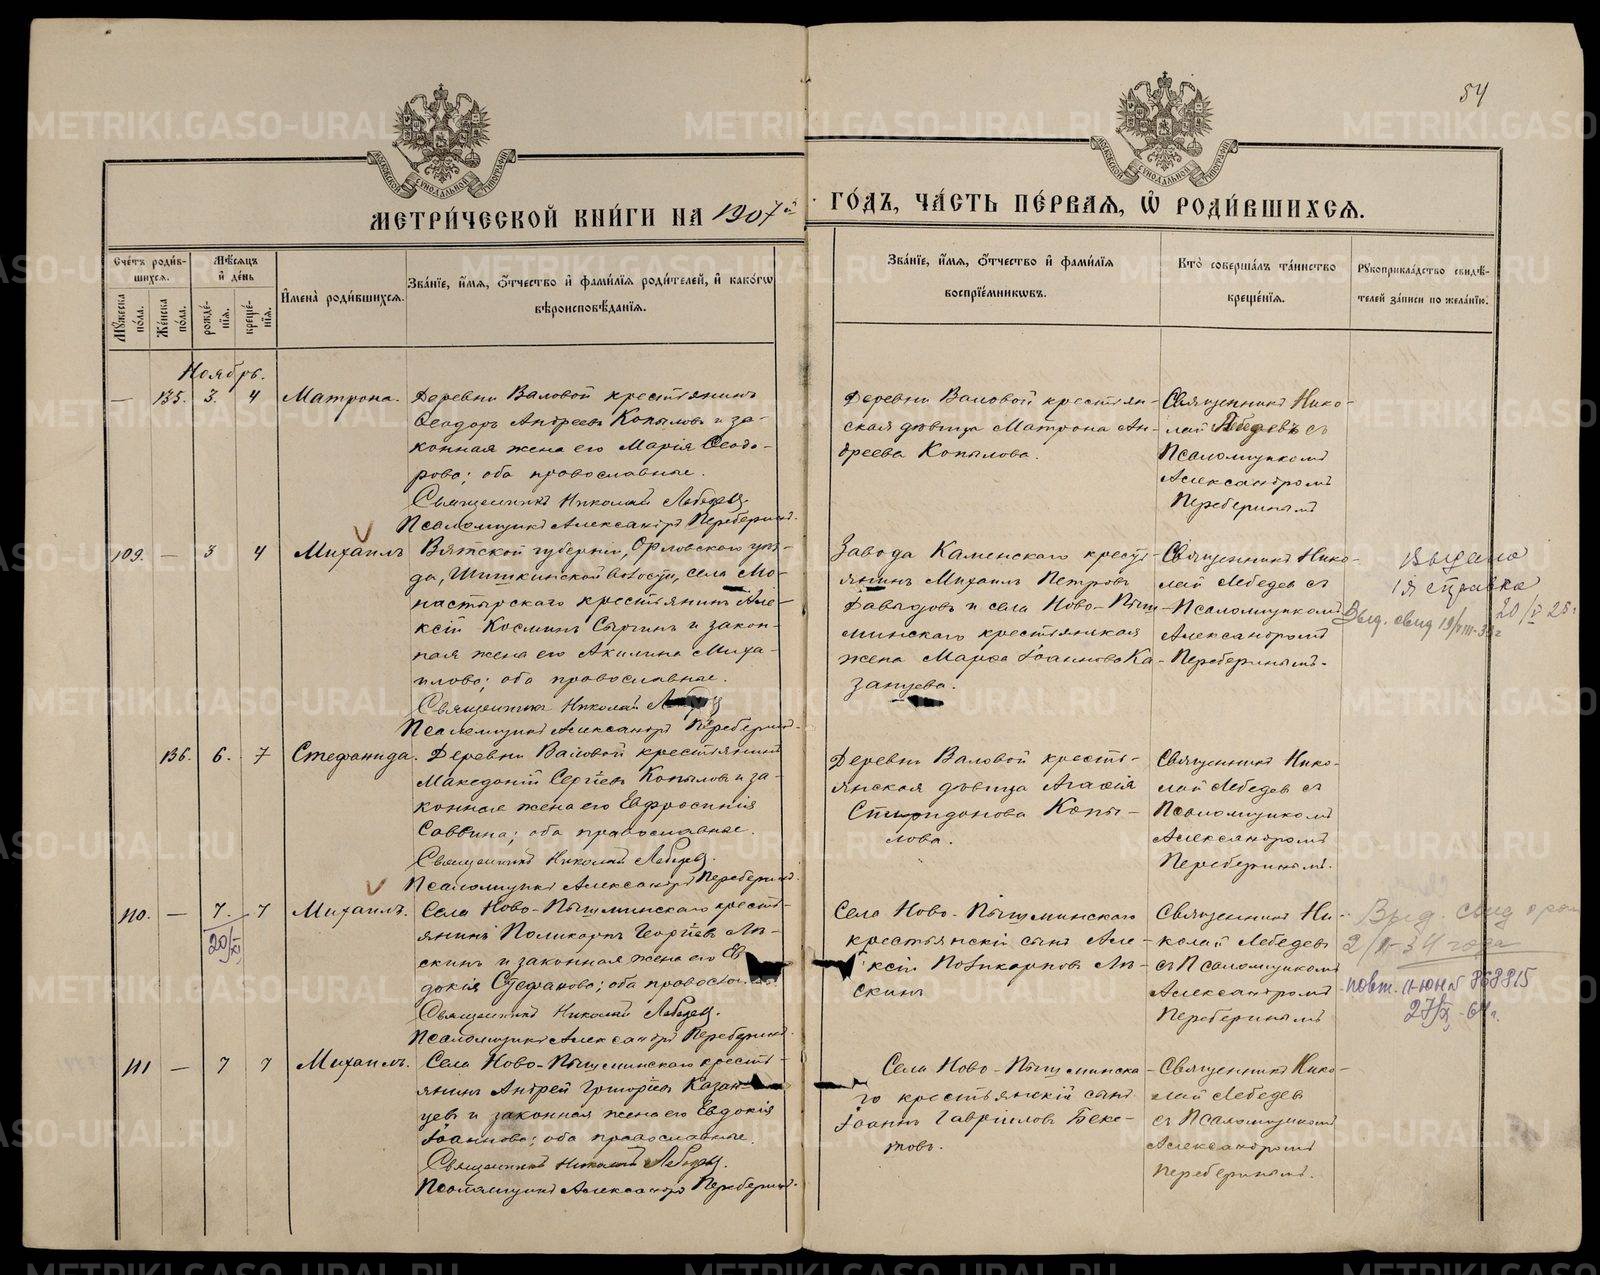 54
МОСКОВСКОЙ СИНОДАЛЬНОЙ ТИПОГРАФІИ
МОСКОВСКОЙ СИНОДАЛЬНОЙ ТИПОГРАФІИ
МЕТРИ́ЧЕСКОЙ КНИ́ГИ НА 1907й
ГО́ДЪ, ЧА́СТЬ ПЕ́РВАѦ, Ѡ РОДИ́ВШИХСѦ.
Сче́тъ роди́в-
шихсѧ.
Мꙋ́жеска по́ла.
Же́нска по́ла.
Мѣ́сѧцъ и҆ де́нь
рожде́-
нїѧ.
креще́-
нїѧ.
И҆мена̀ роди́вшихсѧ.
Зва́нїе, и҆́мѧ, ѻ҆́тчество и҆ фами́лїѧ роди́телей, и҆ како́гѡ
вѣроисповѣ́данїѧ.
Зва́нїе, и҆́мѧ, ѻ҆́тчество и҆ фами́лїѧ
воспрїе́мникѡвъ.
Кто̀ соверша́лъ та́инство
креще́нїѧ.
Рꙋкоприкла́дство свидѣ́-
телей за́писи по жела́нїю.
Ноябрь.
— 135. 3. 4 Матрона.
Деревни Валовой крестьянинъ
Ѳеодоръ Андреевъ Копыловъ и за-
конная жена его Марія Ѳеодо-
рова; оба православные.
Священникъ Николай Лебедевъ.
Псаломщикъ Александръ Переберинъ.
Деревни Валовой крестьян-
ская дѣвица Матрона Ан-
дреева Копылова.
Священникъ Нико-
лай Лебедевъ съ
Псаломщикомъ
Александромъ
Переберинымъ
109. — 3 4 Михаилъ
Вятской губерніи, Орловскаго уѣз-
да, Шиткинской волости, села Мо-
настырскаго крестьянинъ Але-
ксій Косминъ Сыринъ и закон-
ная жена его Акилина Миха-
илова; оба православные.
Священникъ Николай
Псаломщикъ Александръ Переберинъ.
Завода Каменскаго кресть-
янинъ Михаилъ Петровъ
Давыдовъ и села Ново-Пыш-
минскаго крестьянская
жена Марѳа Іоаннова Ка-
занцева.
Священникъ Нико-
лай Лебедевъ съ
Псаломщикомъ
Александромъ
Переберинымъ.
Выдана
1я справка
20/V 25г
Выд. свид 19/VIII-33г
136. 6. 7 Стефанида.
Деревни Валовой крестьянинъ
Македоній Сергіевъ Копыловъ и за-
конная жена его Евфросинія
Саввина; оба православные.
Священникъ Николай Лебедевъ.
Псаломщикъ Александръ Переберинъ.
Деревни Валовой кресть-
янская дѣвица Агаѳія
Спиридонова Копы-
лова.
Священникъ Нико-
лай Лебедевъ съ
Псаломщикомъ
Александромъ
Переберинымъ.
110. — 7. 7 Михаилъ.
20/XI
Села Ново-Пышминскаго кресть-
янинъ Поликарпъ Георгіевъ Лы-
скинъ и законная жена его Ев
докія Стефанова; оба правосл
Священникъ Николай Лебедевъ.
Псаломщикъ Александръ Переберинъ.
Села Ново-Пышминскаго
крестьянскій сынъ Але-
ксій Поликарповъ Лы-
скинъ
Священникъ Ни-
колай Лебедевъ
съ Псаломщикомъ
Александромъ
Переберинымъ
Выд. свид о рож
2/II-34 года
повт. II-ЮН № 868815
27/X-64г.
111 — 7 7 Михаилъ.
Села Ново-Пышминскаго кресть-
янинъ Андрей Григорьевъ Казан-
цевъ и законная жена его Евдокія
Іоаннова; оба православные.
Священникъ Николай Лебедевъ.
Псаломщикъ Александръ Переберинъ.
Села Ново-Пышминска-
го крестьянскій сынъ
Іоаннъ Гавріиловъ Беке-
товъ.
Священникъ Нико-
лай Лебедевъ
съ Псаломщикомъ
Александромъ
Переберинымъ.
METRIKI.GASO-URAL.RU